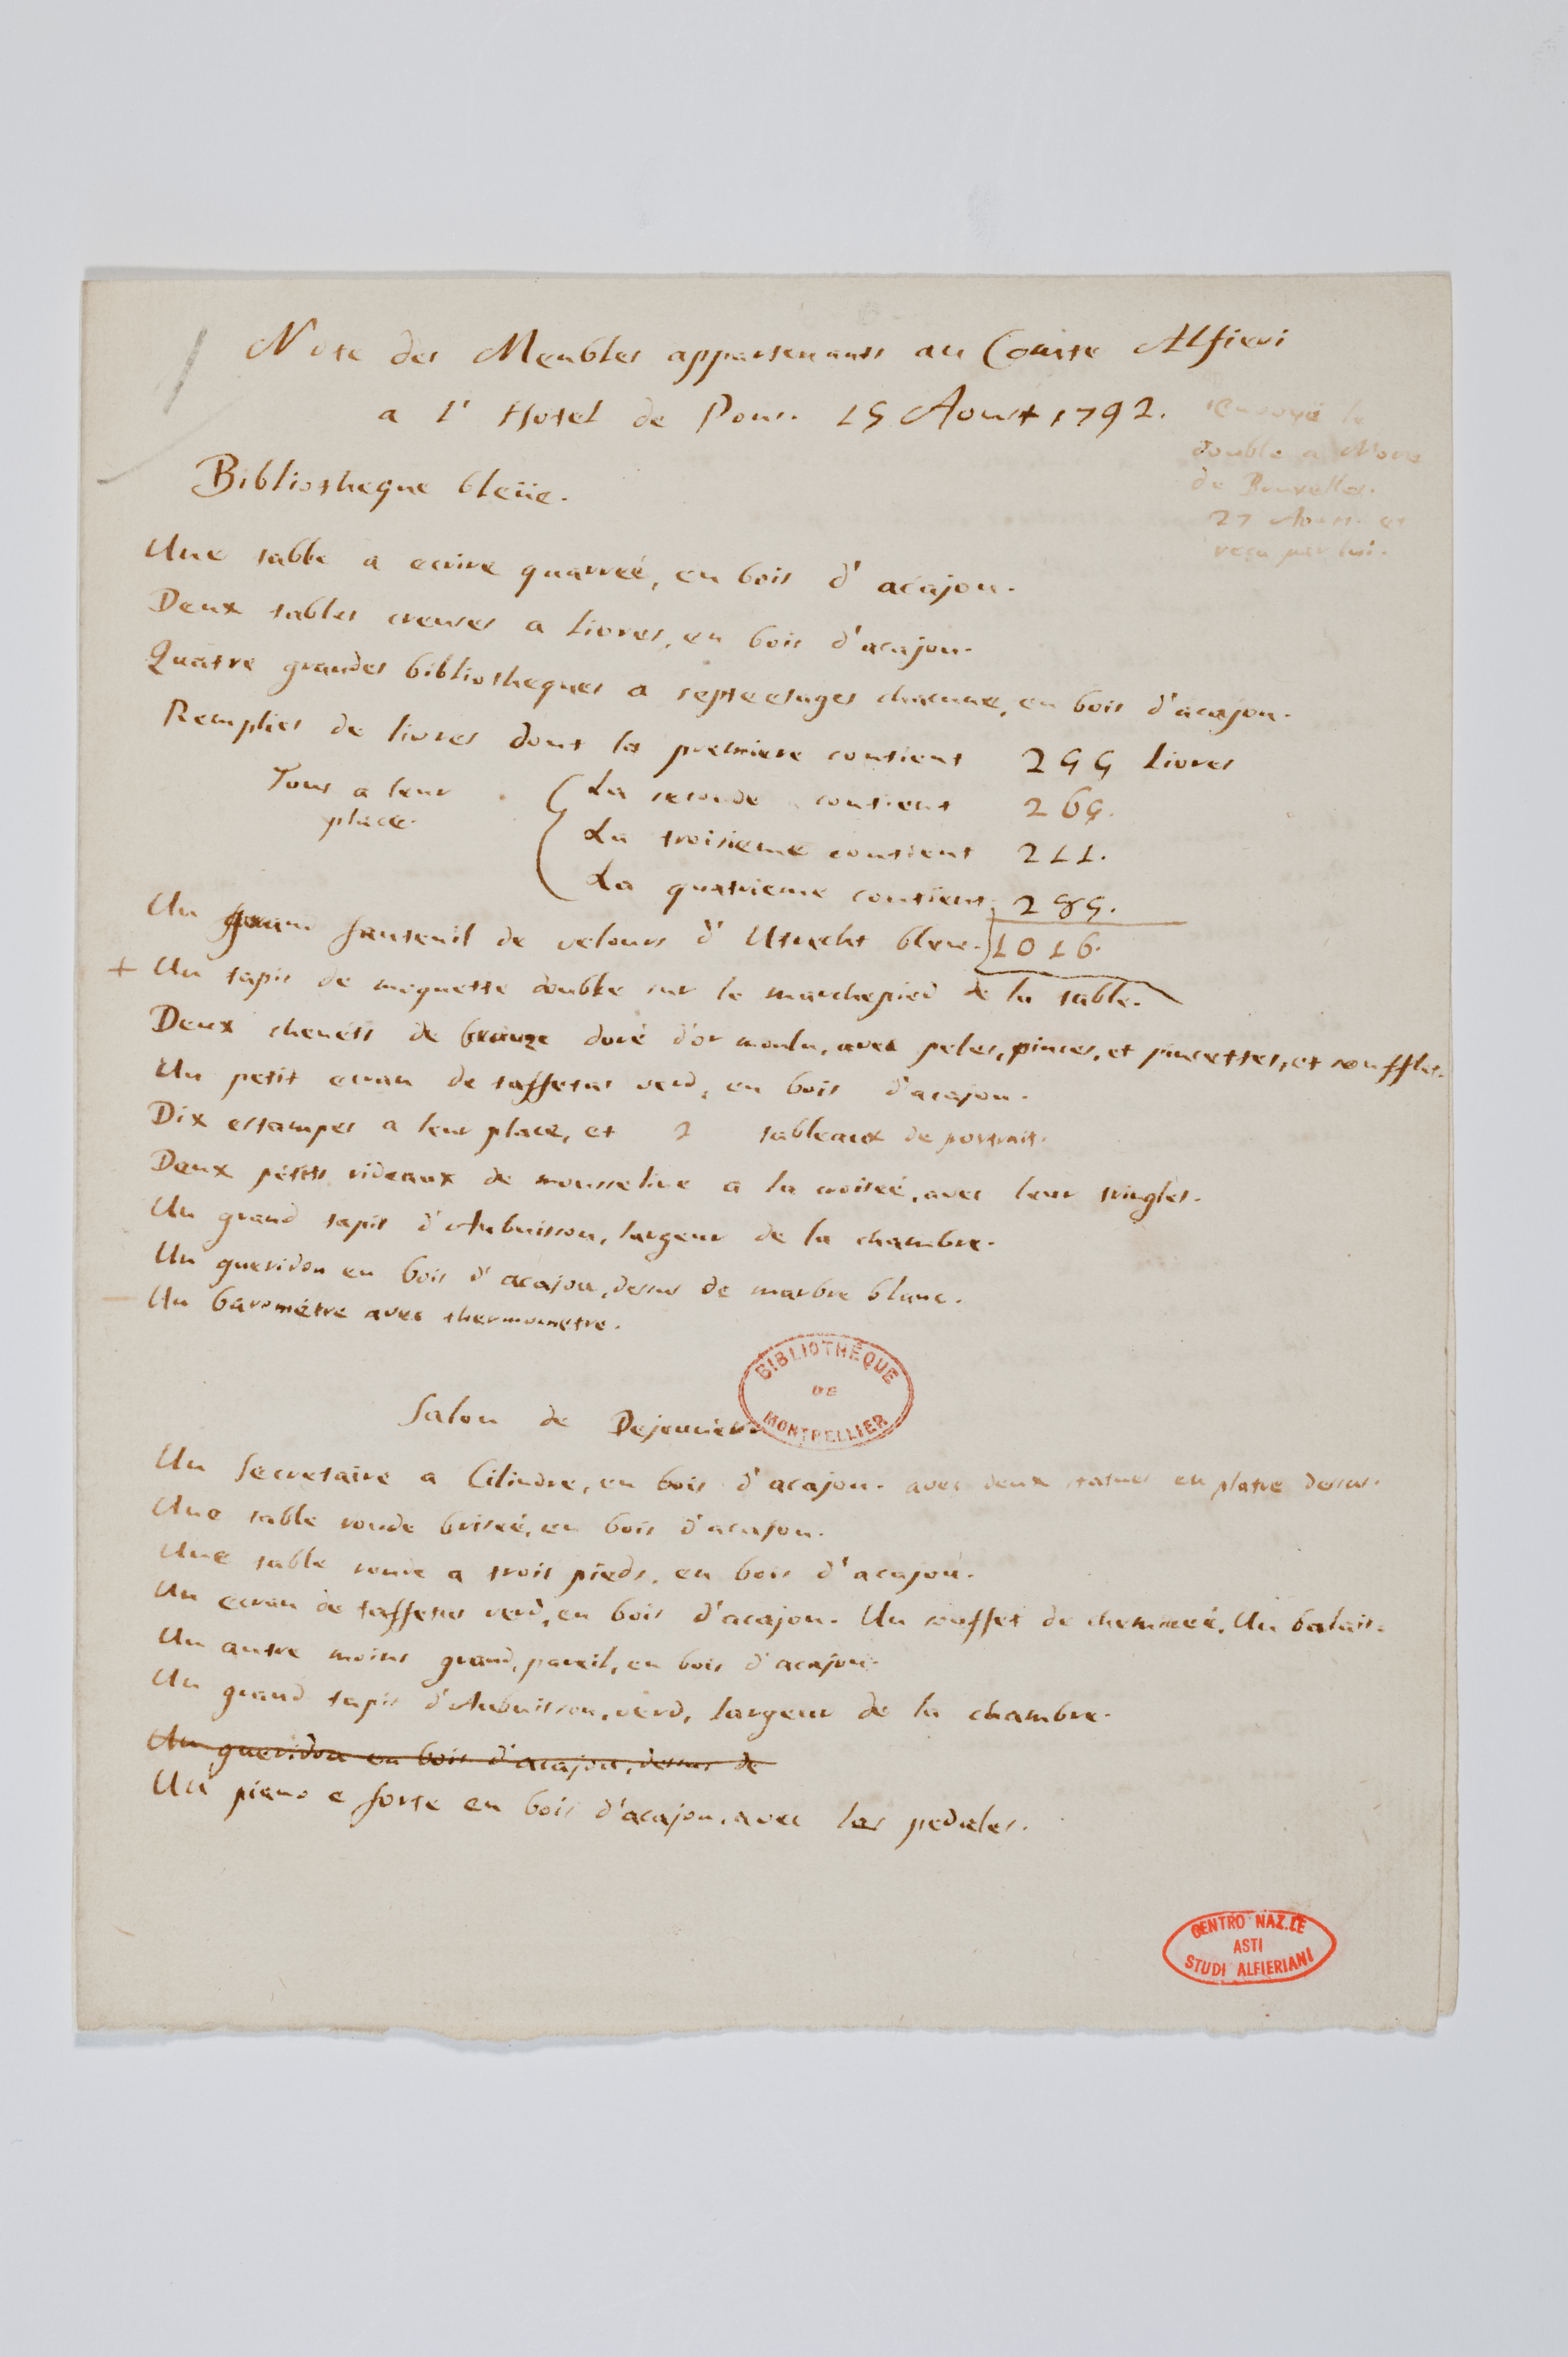 Note des Meubles appartenants au Comte Alfieri
a l' Hotel de Pons. 15 Aoust 1792.
Envoyé le
double a
de Bruxelles.
27 Aoust. et
reçu par lui.
Bibliotheque bleüe.
Une table a ecrire quarreé, en bois d' acajou.
Deux tables creuses a livres, en bois d'acajou.
Quatre grandes bibliotheques a septe etages chacune, en bois d'acajou.
Remplies de livres dont la premiere contient 255 livres
Tous a leur place. La seconde contient 265.
La troisieme contient 211.
La quatrieme contient 285.
Un grand fauteuil de velours d' Utrecht bleue. 1016.
+ Un tapis de moquette double sur le marchepied de la table.
Deux chenéts de bronze doré d'or moulu, avec peles, pinces, et pincettes, et soufflet.
Un petit ecran de taffetas verd, en bois d'acajou.
Dix estampes a leur place, et 2 tableaux de portrait.
Deux petits rideaux de mousseline a la croiseé, avec leur tringles.
Un grand tapis d'Aubuisson, largeur de la chambre.
Un gueridon en bois d' acajou, dessus de marbre blanc.
Un barométre avec thermometre.
BIBLIOTHÈQUE
DE
MONTPELLIER
Salon de Dejeuner.
Un Secretaire a Cilindre, en bois d'acajou. avec deux statues en platre dessus.
Une table ronde briseé, en bois d'acajou.
Une table ronde a trois pieds, en bois d'acajou.
Un ecran de taffetas verd, en bois d'acajou. Un soufflet de chemineé. Un balais.
Un autre moins grand, pareil, en bois d'acajou.
Un grand tapis d'Aubuisson, verd, largeur de la chambre.
Un gueridon en bois d'acajou, dessus de
Un piano e forte en bois d'acajou, avec les pedales.
CENTRO NAZ.LE
ASTI
STUDI ALFIERIANI